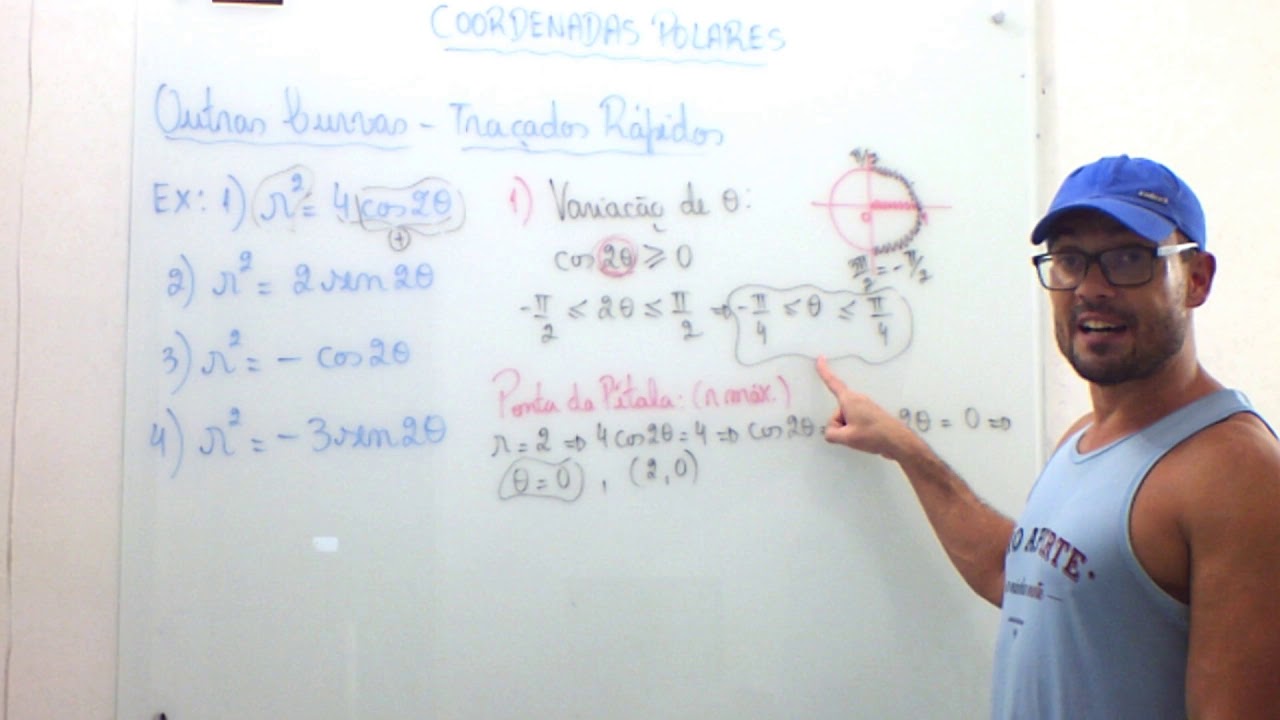 COORDENADAS POLARES
Outras Curvas - Traçados Rápidos
Ex: 1) r² = 4 cos2θ
(+)
2) r² = 2 sen2θ
3) r² = - cos2θ
4) r² = - 3sen2θ
1) Variação de θ:
cos 2θ ≥ 0
-π/2 ≤ 2θ ≤ π/2 ⇒ -π/4 ≤ θ ≤ π/4
Ponta da Pétala: (r máx.)
r = 2 ⇒ 4cos2θ = 4 ⇒ cos2θ = 2θ = 0 ⇒
θ = 0 , (2,0)
π/2
0
= -π/2